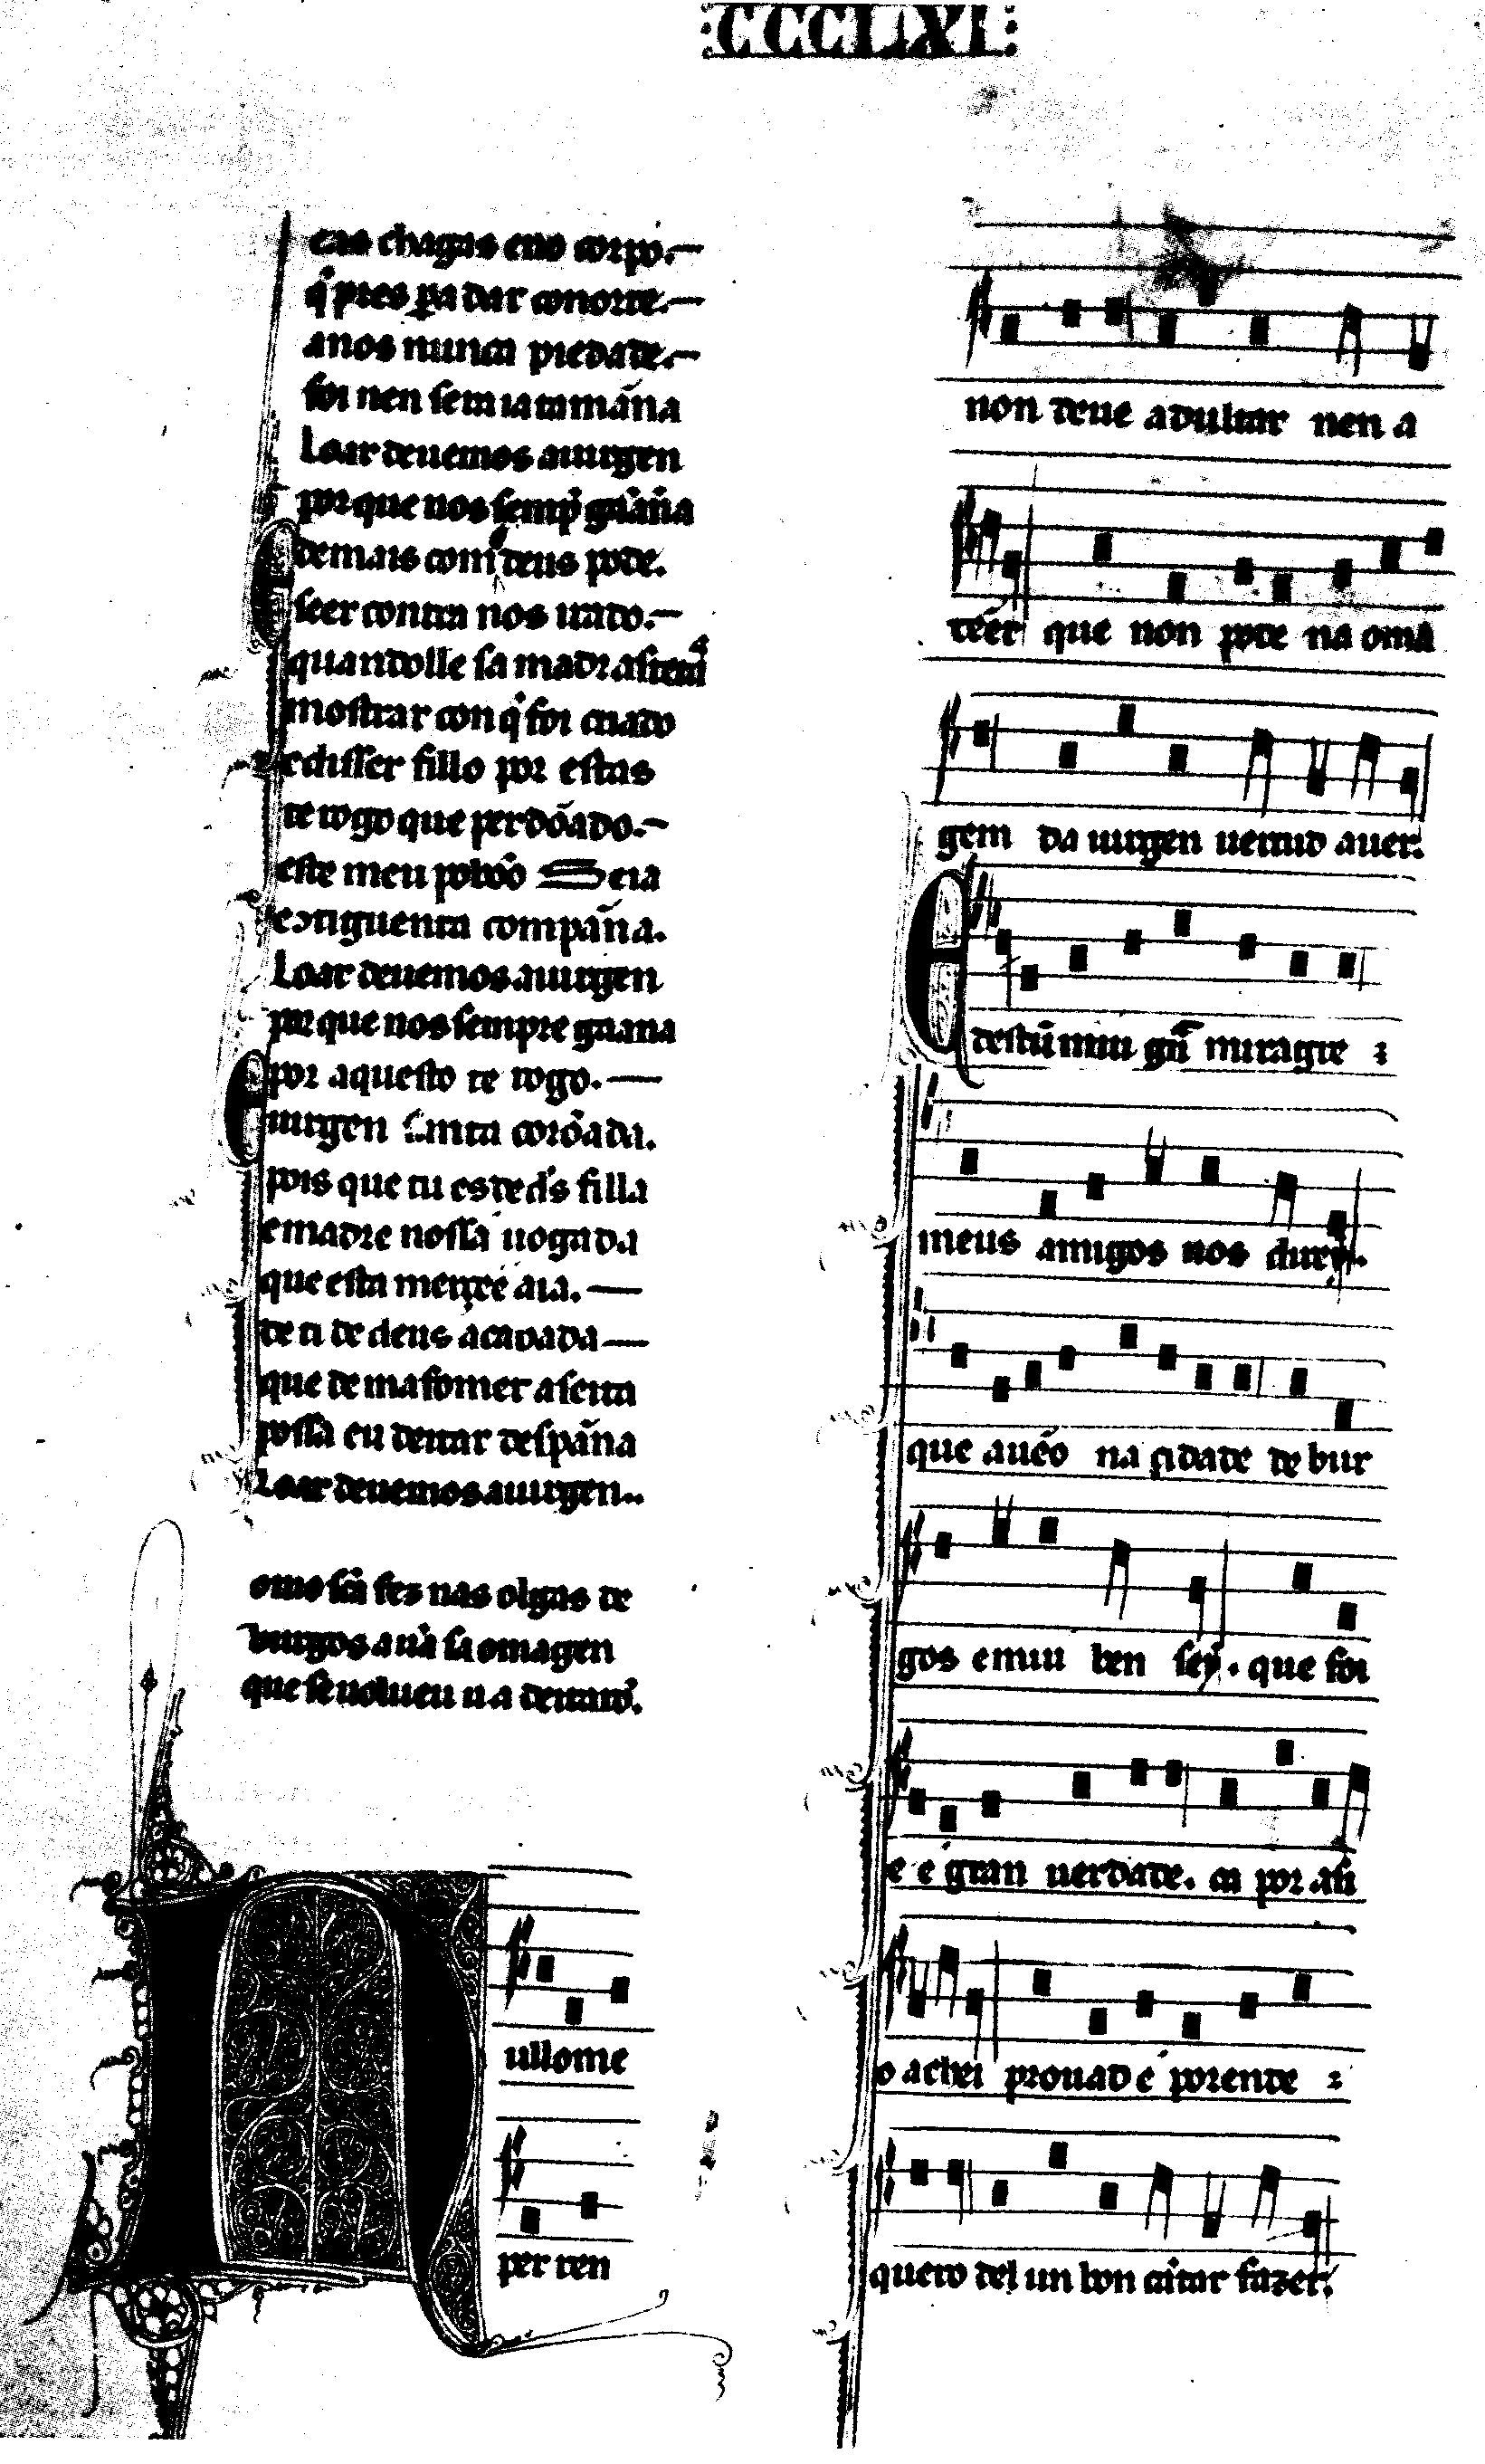 :CCCLXI:
tas chagas eno corpo.—
q̇ pres pa dar conorte.—
a nos nunca piedade.—
foi nen sera ia tamãna
Loar deuemos a uirgen
por que nos sempṙ gaãna
E demais com a deus pode.
seer contra nos irado.—
quando lle sa madr a teta
mostrar con q̇ foi criado
e disser fillo por estas
te rogo que perdõado.—
este meu poboo seia
e ontigu en ta compan̄a.
Loar deuemos a uirgen
por que nos sempre gaana
E por aquesto te rogo.—
uirgen santa corõada.
pois que tu es de ds̄ filla
e madre nossa uogada
que esta merçee aia.—
de ti de deus acabada—
que de mafomet a seita
possa eu deitar despan̄a
Loar deuemos a uirgen..
omo sc̄a fez nas olgas de
burgos a ūa sa omagen
que se uolueu na
N ullome
per ren
non deue adultar nen a
tẽer que non pode na oma
gem da uirgen uertud auer.
E destũ mui gn̄ miragre :
meus amigos nos direy.
que auẽo na çidade de bur
gos e mui ben sey. que foi
e e gran uerdade. ca por assi
o achei prouad e porende :
quero del un bon cātar fazer.